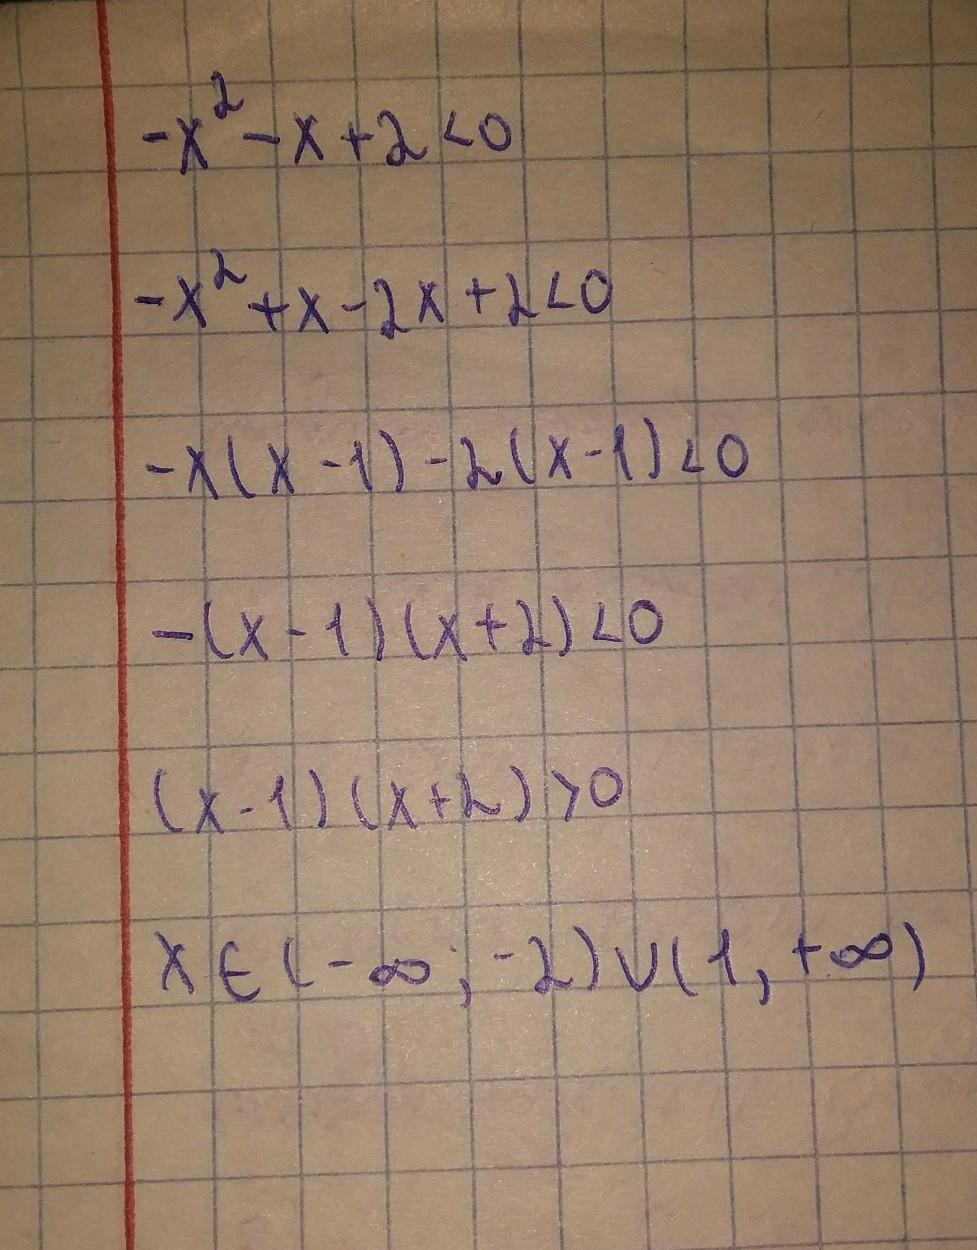 -x² - x + 2 < 0
-x² + x - 2x + 2 < 0
-x(x - 1) - 2(x - 1) < 0
-(x - 1)(x + 2) < 0
(x - 1)(x + 2) > 0
x ∈ (-∞; -2) ∪ (1, +∞)